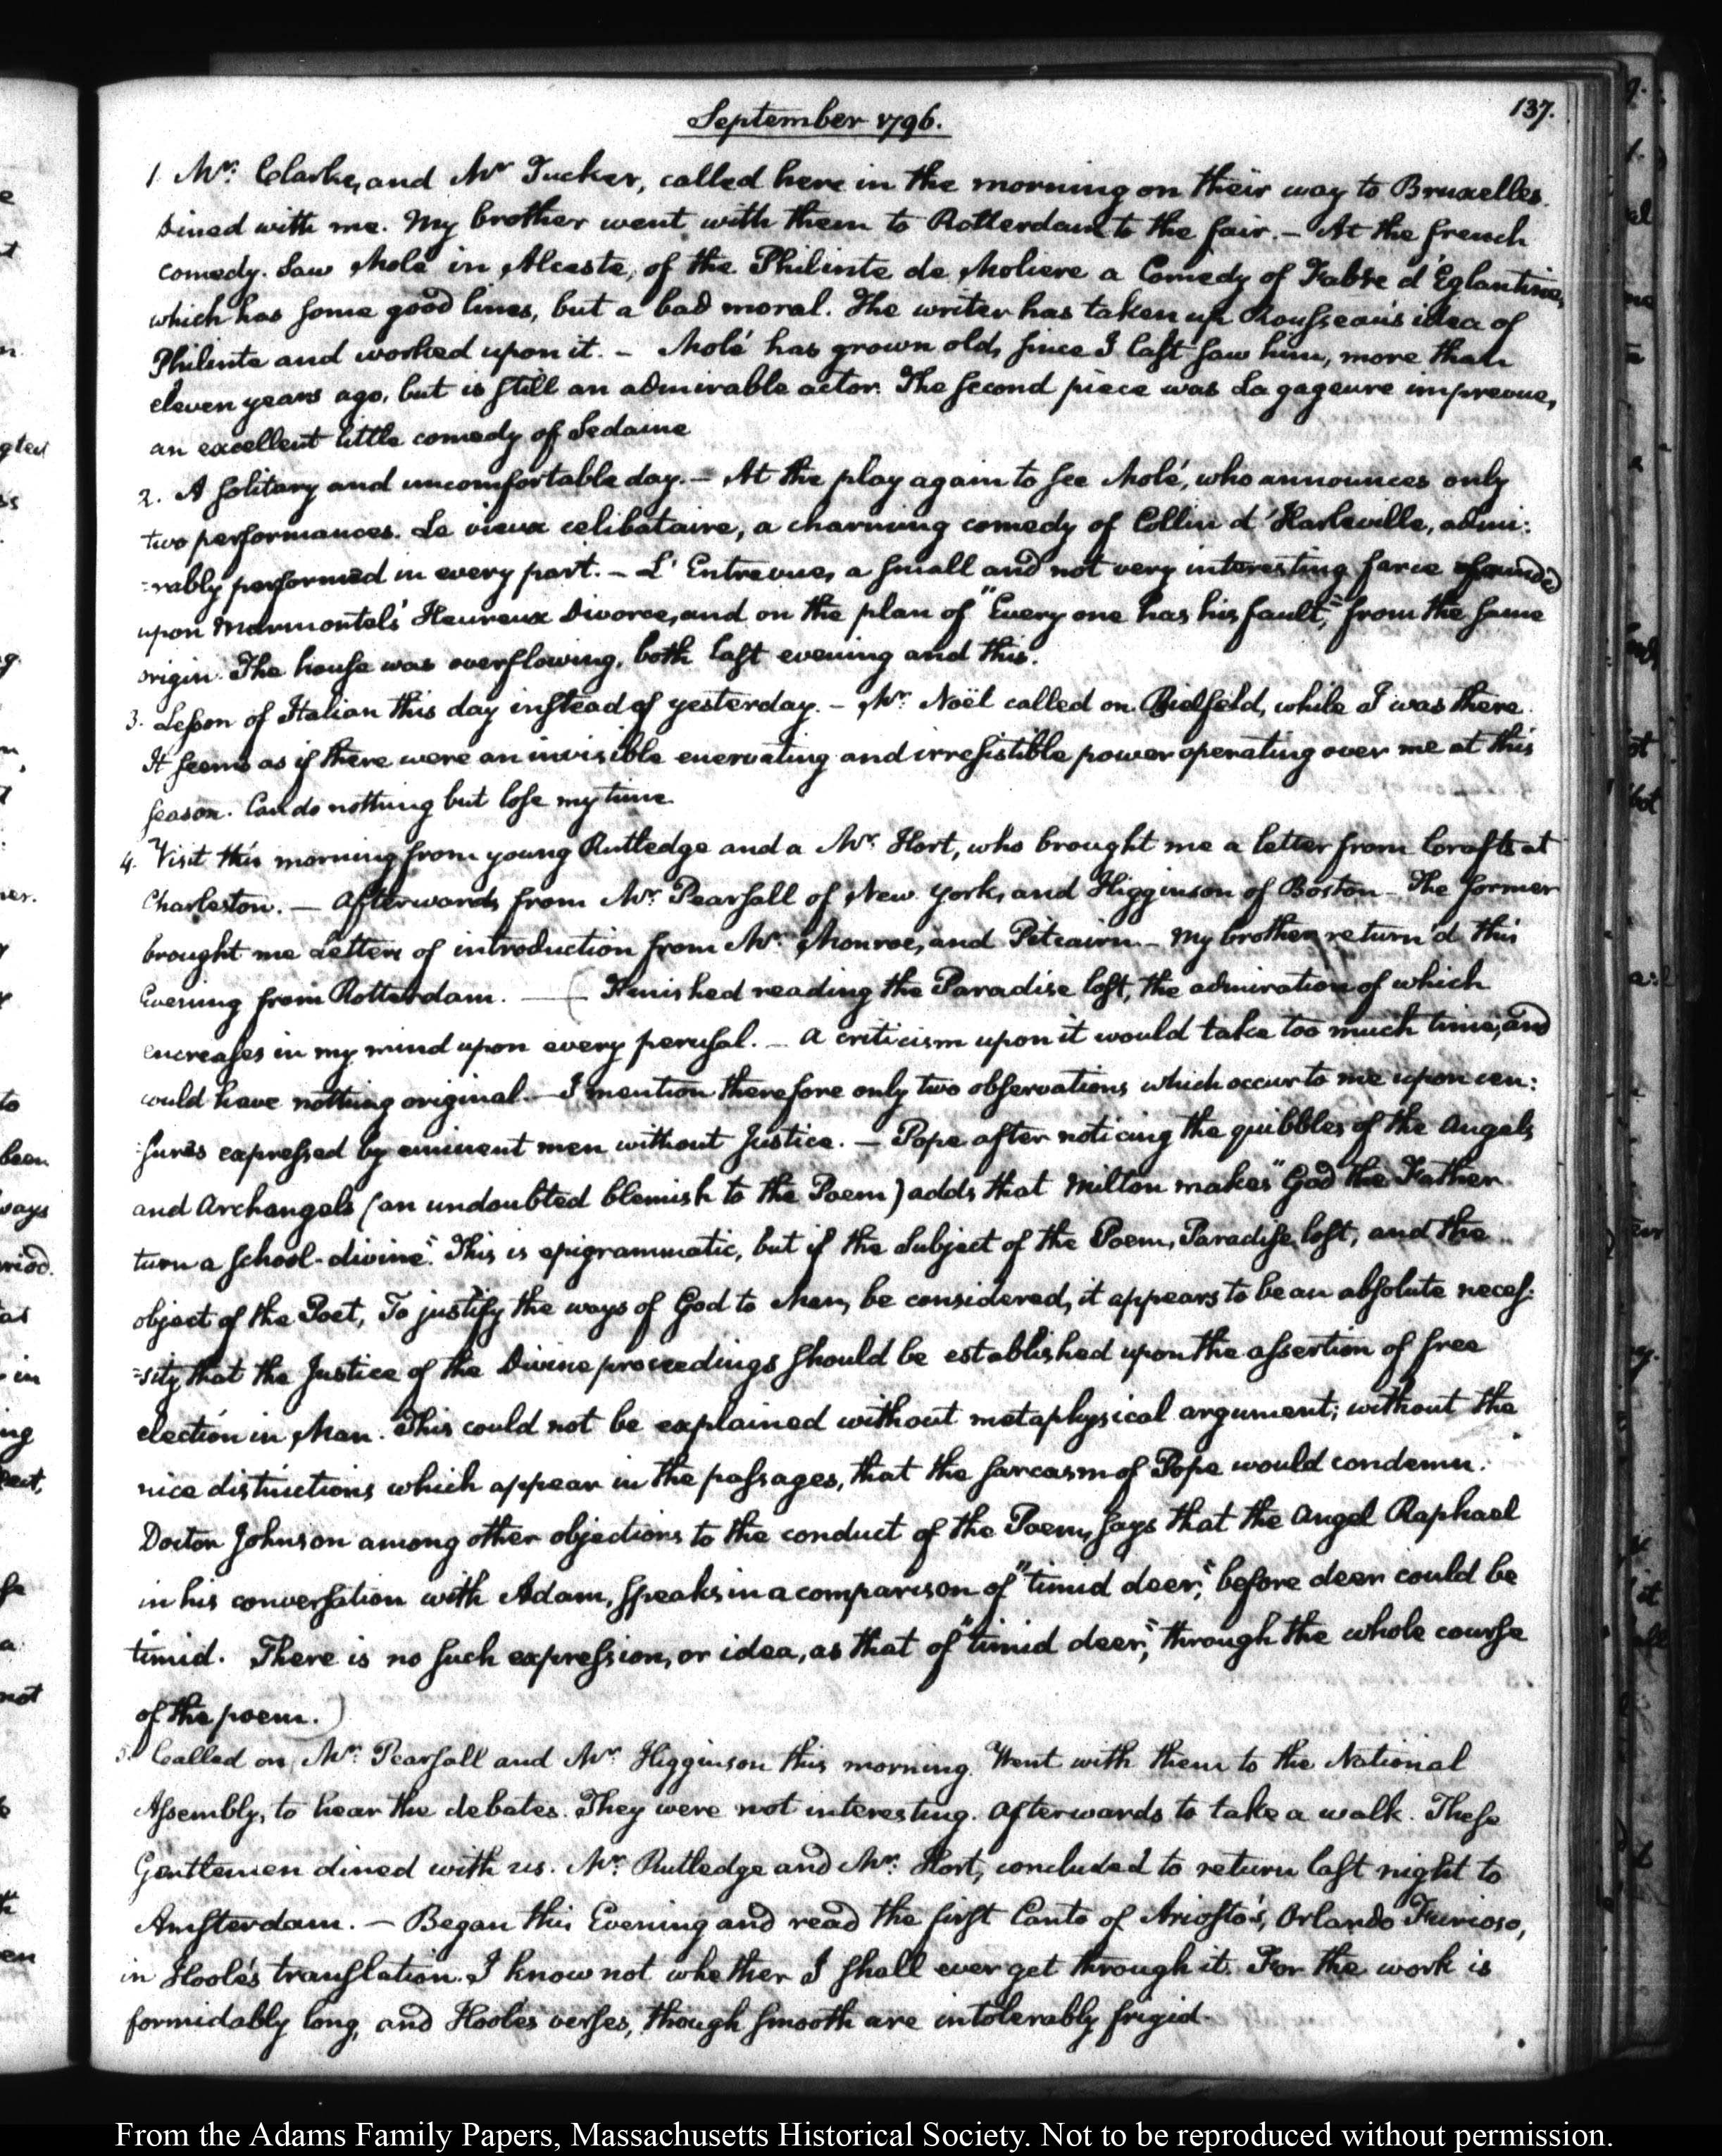 September 1796.
137.
1. Mr. Clarke, and Mr Tucker, called here in the morning on their way to Bruxelles.
Dined with me. My brother went with them to Rotterdam to the fair. — At the french
comedy. Saw Molé in Alceste, of the Philinte de Moliere a Comedy of Fabre d'Eglantine,
which has some good lines, but a bad moral. The writer has taken up Rousseau's idea of
Philinte and worked upon it. — Molé has grown old, since I last saw him, more than
eleven years ago, but is still an admirable actor. The second piece was La gageure imprevue,
an excellent little comedy of Sedaine
2. A solitary and uncomfortable day. — At the play again to see Molé, who announces only
two performances. Le vieux celibataire, a charming comedy of Collin d'Harleville, admi:
:rably performed in every part. — L'Entrevue, a small and not very interesting farce founded
upon Marmontel's Heureux Divorce, and on the plan of "Every one has his fault," from the same
origin. The house was overflowing, both last evening and this.
3. Lesson of Italian this day instead of yesterday. — Mr. Noël called on Bielfeld, while I was there.
It seems as if there were an invisible enervating and irresistible power operating over me at this
season. Can do nothing but lose my time.
4. Visit this morning from young Rutledge and a Mr. Hort, who brought me a letter from Crafts at
Charleston. — Afterwards from Mr. Pearsall of New York, and Higginson of Boston — The former
brought me Letters of introduction from Mr. Monroe, and Pitcairn. — My brother return'd this
Evening from Rotterdam. — ( Finished reading the Paradise lost, the admiration of which
encreases in my mind upon every perusal. — A criticism upon it would take too much time, and
could have nothing original. — I mention therefore only two observations which occur to me upon cen:
:sures expressed by eminent men without Justice. — Pope after noticing the quibbles of the Angels
and Archangels (an undoubted blemish to the Poem) adds that Milton makes "God the Father
turn a school-divine." This is epigrammatic, but if the Subject of the Poem, Paradise lost, and the
object of the Poet, To justify the ways of God to Man, be considered, it appears to be an absolute neces:
:sity that the Justice of the Divine proceedings should be established upon the assertion of free
election in Man. This could not be explained without metaphysical argument; without the
nice distinctions which appear in the passages, that the sarcasm of Pope would condemn.
Doctor Johnson among other objections to the conduct of the Poem, says that the Angel Raphael
in his conversation with Adam, speaks in a comparison of "timid deer," before deer could be
timid. There is no such expression, or idea, as that of "timid deer," through the whole course
of the poem. )
5. Called on Mr. Pearsall and Mr. Higginson this morning. Went with them to the National
Assembly, to hear the debates. They were not interesting. Afterwards to take a walk. These
Gentlemen dined with us. Mr. Rutledge and Mr. Hort, concluded to return last night to
Amsterdam. — Began this Evening and read the first Canto of Ariosto's, Orlando Furioso,
in Hoole's translation. I know not whether I shall ever get through it. For the work is
formidably long, and Hoole's verses, though smooth are intolerably frigid.
From the Adams Family Papers, Massachusetts Historical Society. Not to be reproduced without permission.